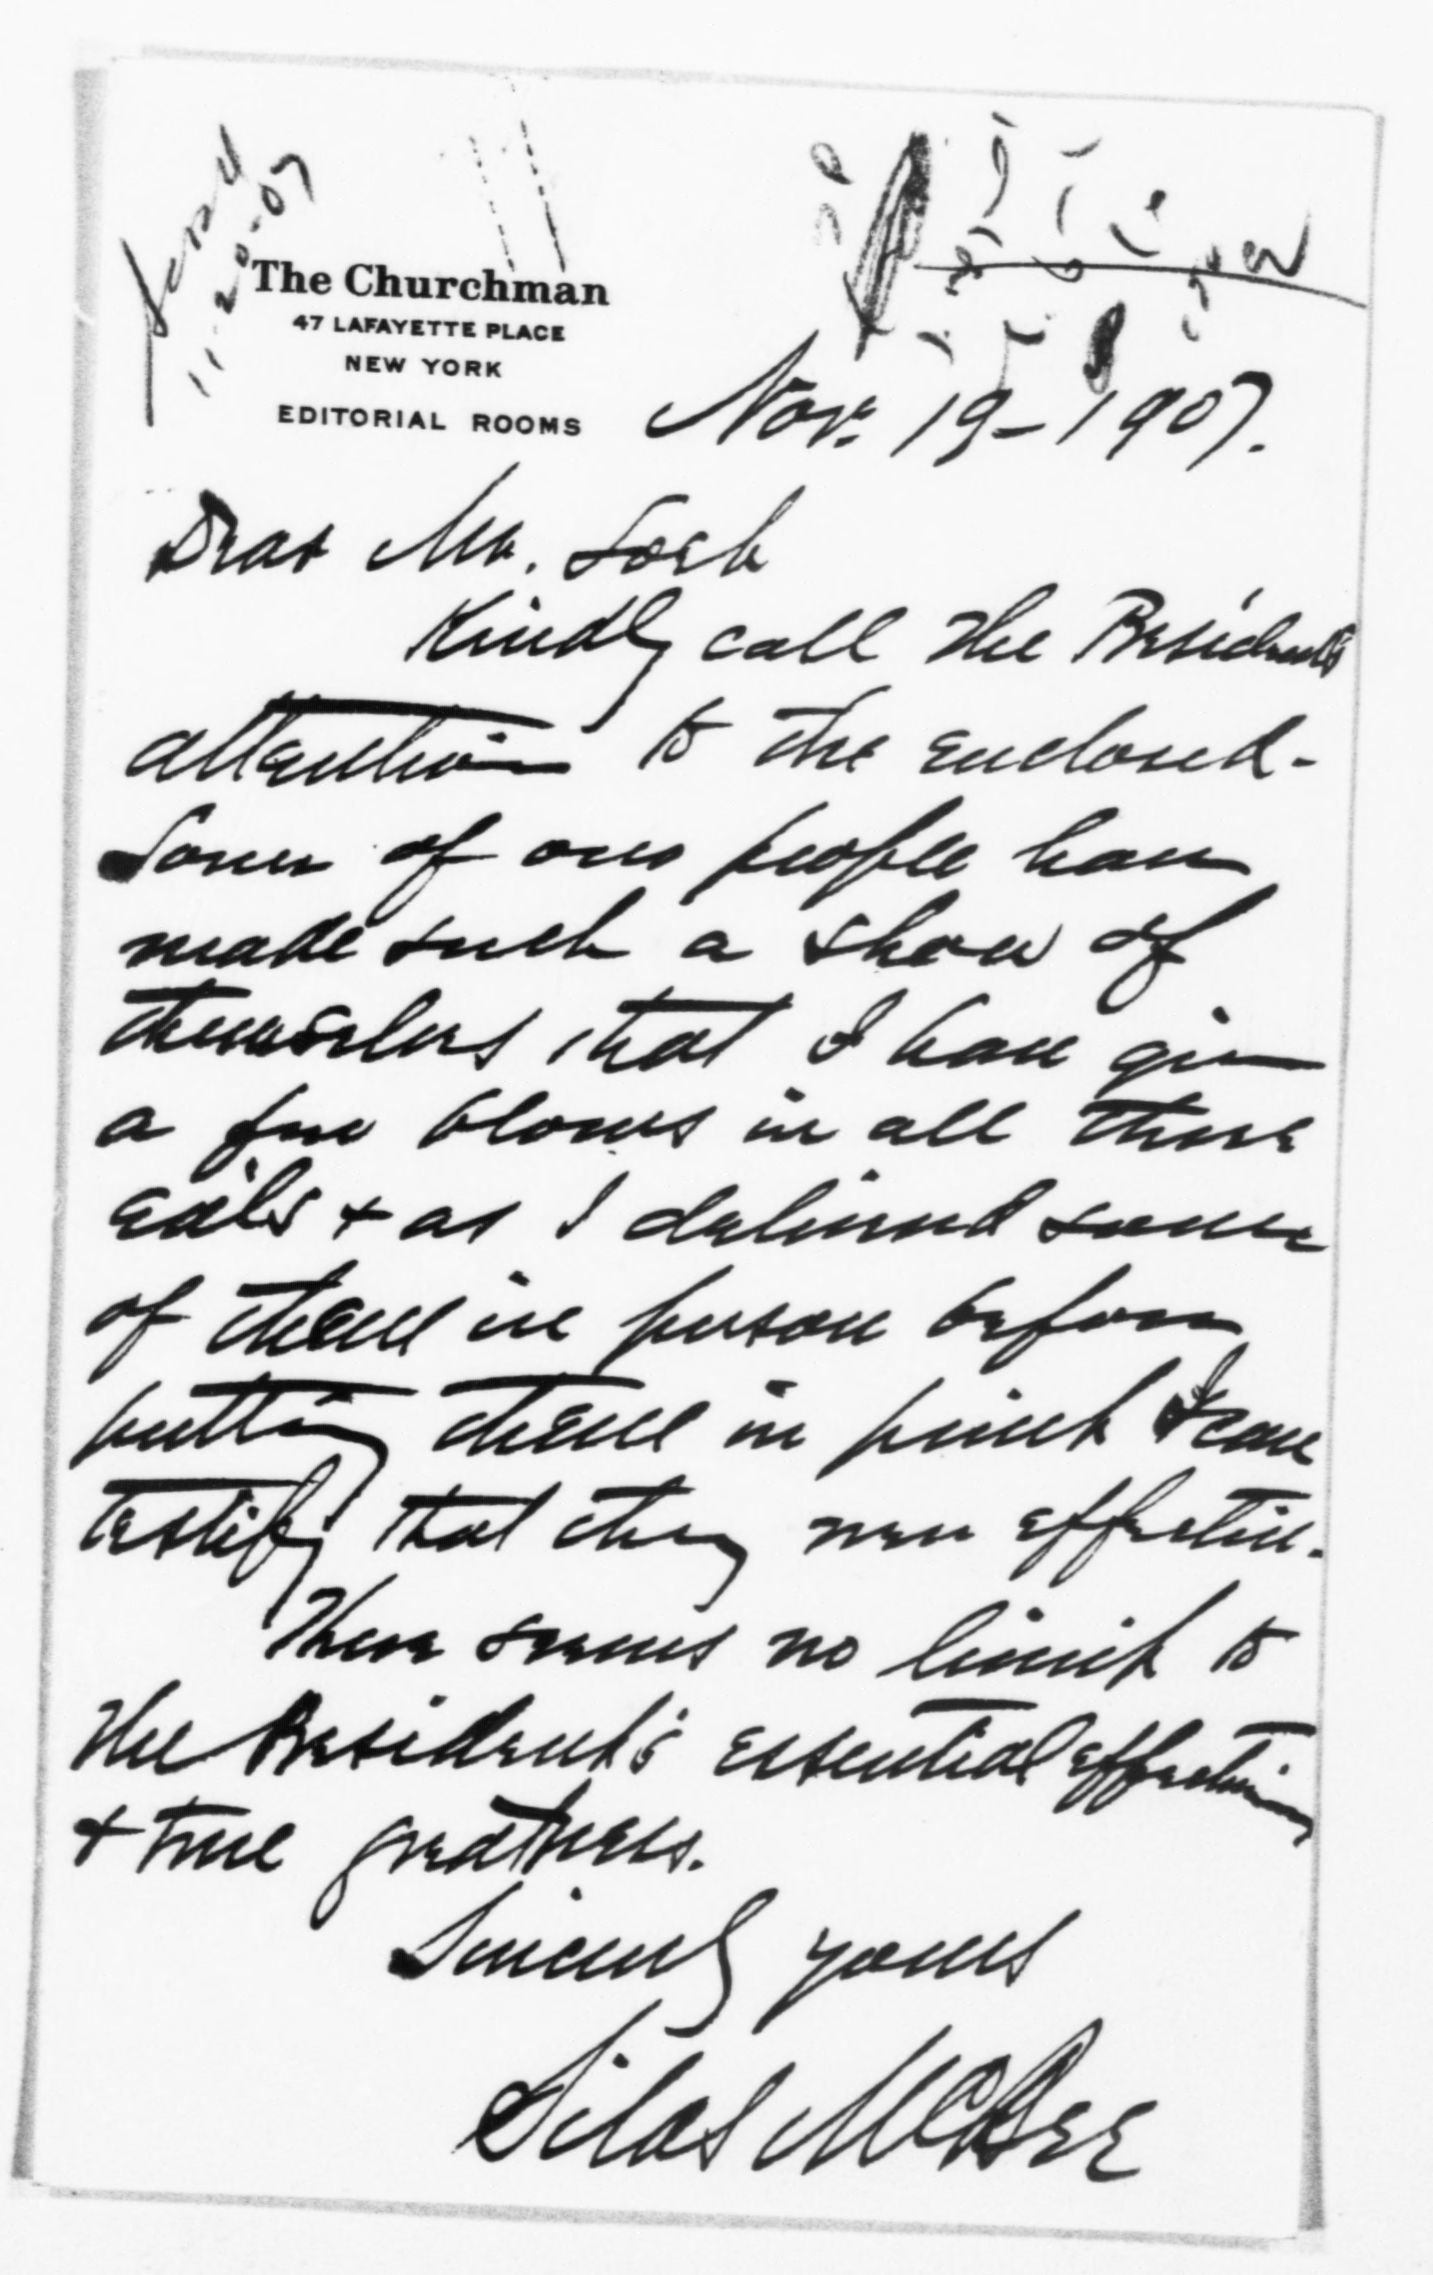 11-20-07
The Churchman
47 LAFAYETTE PLACE
NEW YORK
EDITORIAL ROOMS
Nov. 19-1907.
Dear Mr. Loeb
Kindly call the President's
attention to the enclosed-
Some of our people have
made such a show of
themselves that I have given
a few blows in all three
& as I delivered some
of them in person before
putting them in print I can
testify that they were effective.
There seems no limit to
the President's essential effectiveness
& true greatness.
Sincerely yours
Silas McBee